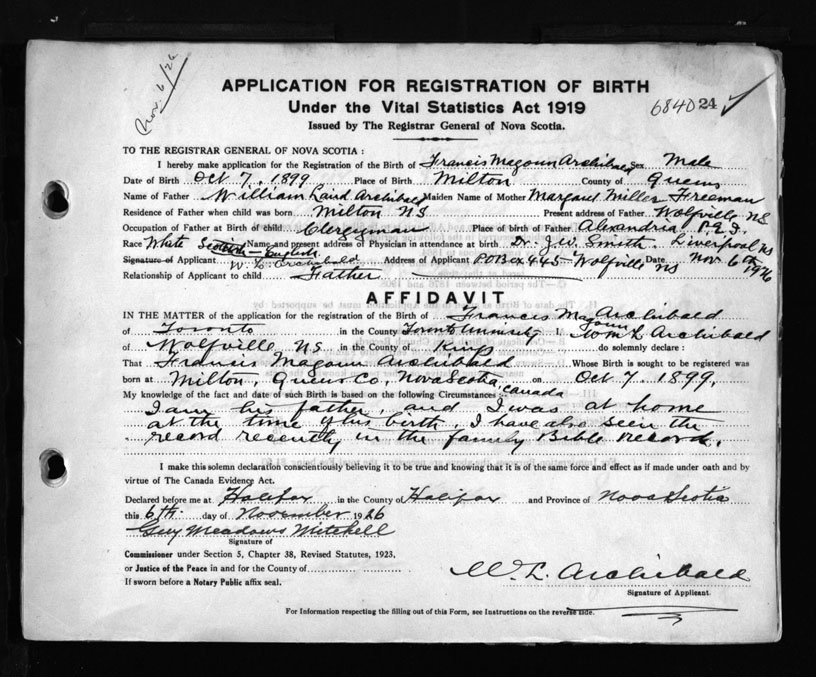 Nov. 6/26
APPLICATION FOR REGISTRATION OF BIRTH
Under the Vital Statistics Act 1919
684024
Issued by The Registrar General of Nova Scotia.
TO THE REGISTRAR GENERAL OF NOVA SCOTIA :
I hereby make application for the Registration of the Birth of Francis Magoun Archibald Sex Male
Date of Birth Oct 7, 1899 Place of Birth Milton County of Queens
Name of Father William Archibald Maiden Name of Mother Margaret Miller Freeman
Residence of Father when child was born Milton NS Present address of Father Wolfville NS
Occupation of Father at Birth of child Clergyman Place of birth of Father Alexandria P.E.I.
Race White Scotch - English Name and present address of Physician in attendance at birth Dr. Smith Liverpool NS
Signature of Applicant W. L. Archibald Address of Applicant P.O. Box 445 - Wolfville NS Date Nov 6th 1926
Relationship of Applicant to child Father
AFFIDAVIT
IN THE MATTER of the application for the registration of the Birth of Francis Magoun Archibald
of Toronto in the County Toronto University I, Wm L Archibald
of Wolfville NS in the County of Kings do solemnly declare :
That Francis Magoun Archibald Whose Birth is sought to be registered was
born at Milton, Queens Co, Nova Scotia, Canada on Oct 7. 1899.
My knowledge of the fact and date of such Birth is based on the following Circumstances :
I am his father, and I was at home
at the time of his birth. I have also seen the
record recently in the family Bible Record.
I make this solemn declaration conscientiously believing it to be true and knowing that it is of the same force and effect as if made under oath and by
virtue of The Canada Evidence Act.
Declared before me at Halifax in the County of Halifax and Province of Nova Scotia
this 6th day of November 1926
Guy Meadows Mitchell
Signature of
Commissioner under Section 5, Chapter 38, Revised Statutes, 1923,
or Justice of the Peace in and for the County of
If sworn before a Notary Public affix seal.
W. L. Archibald
Signature of Applicant.
For Information respecting the filling out of this Form, see Instructions on the reverse side.